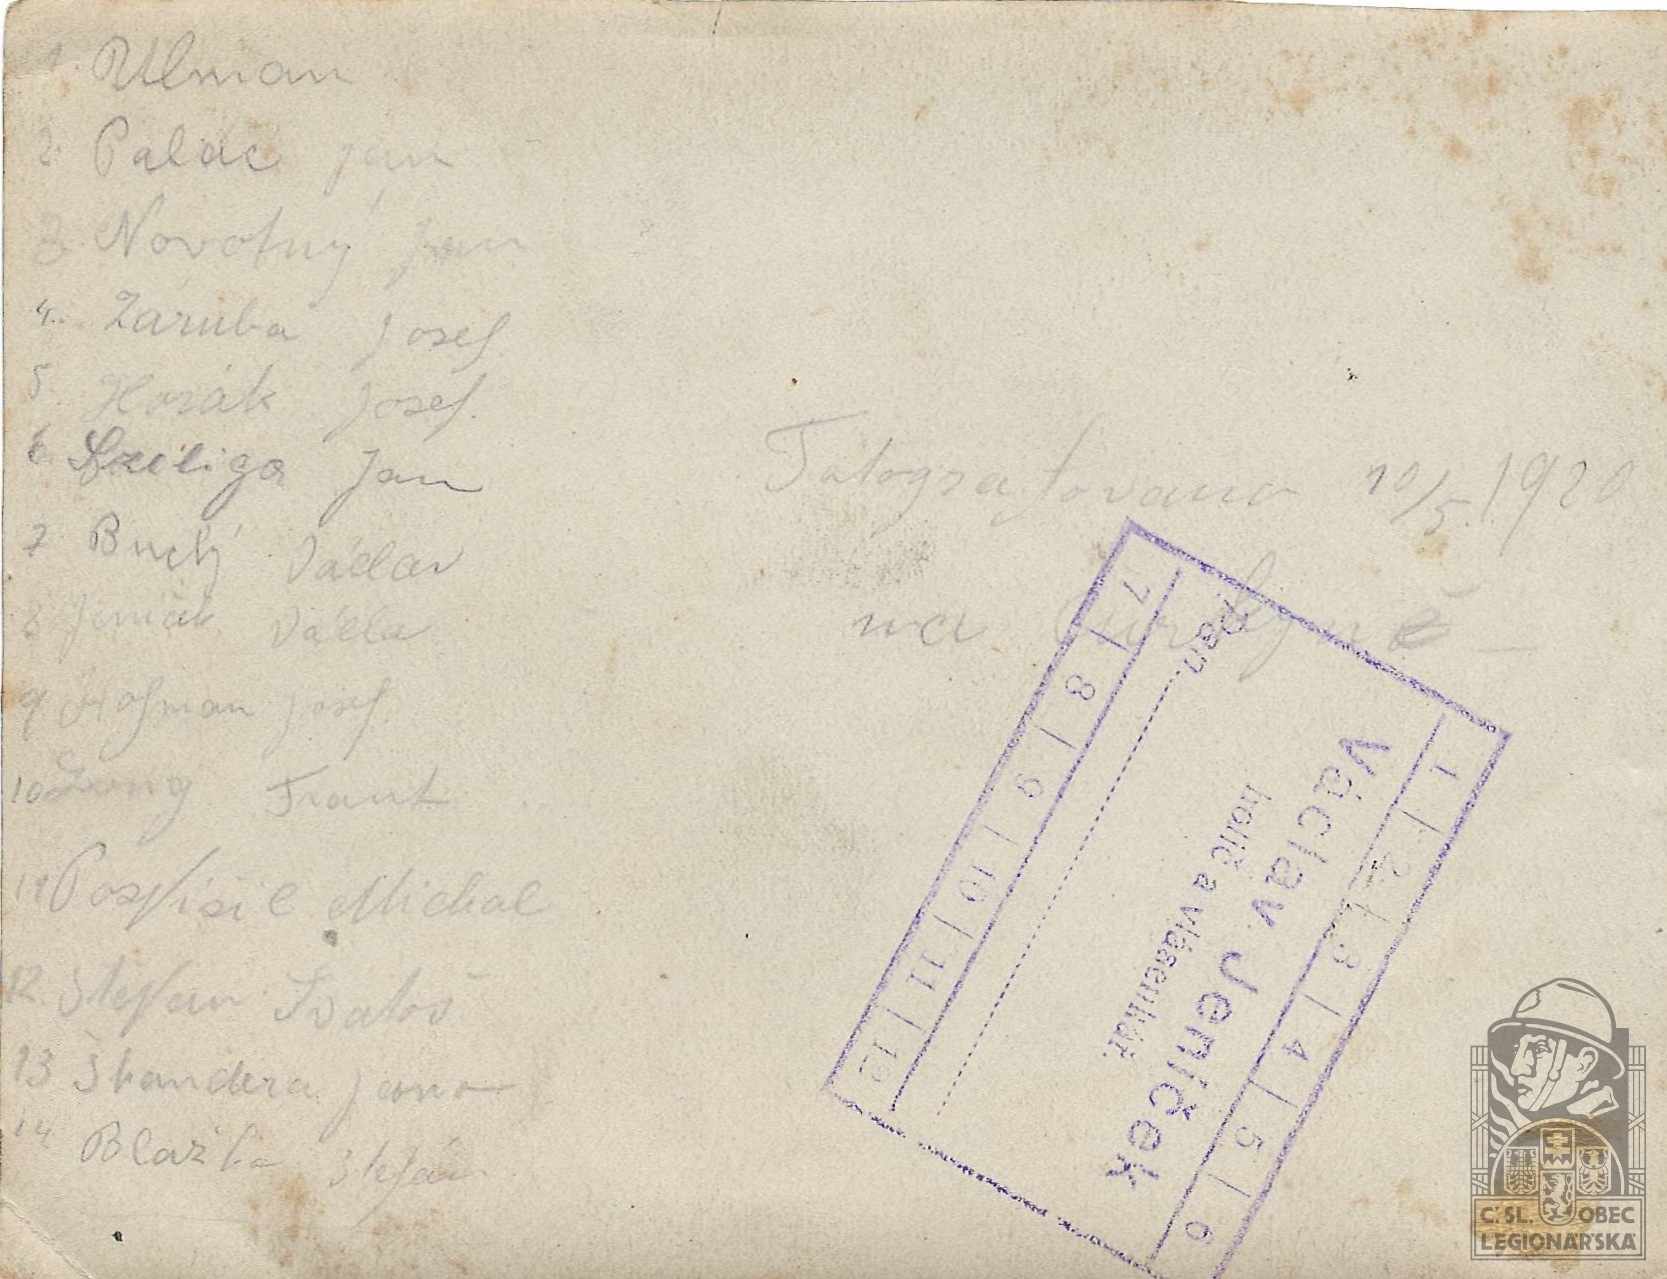 1. Ulman
2. Paläc Jan
3. Novotný Jan
4. Záruba Josef
5 Horák Josef.
6 Szeliga Jan
7 Buchý Václav
8 Václa
9 Hofman Josef.
10 Frant
11 Pospišil Michal
12. Štefan Svatoš
13 Škandera Jano
14 Blažka Štefan.
Fotografovano 10/5. 1920
na
Pan
Václav Jeníček
holič a vlásenkář.
1 2 3 4 5 6
7 8 9 10 11 12
Č. SL. OBEC
LEGIONÁŘSKÁ